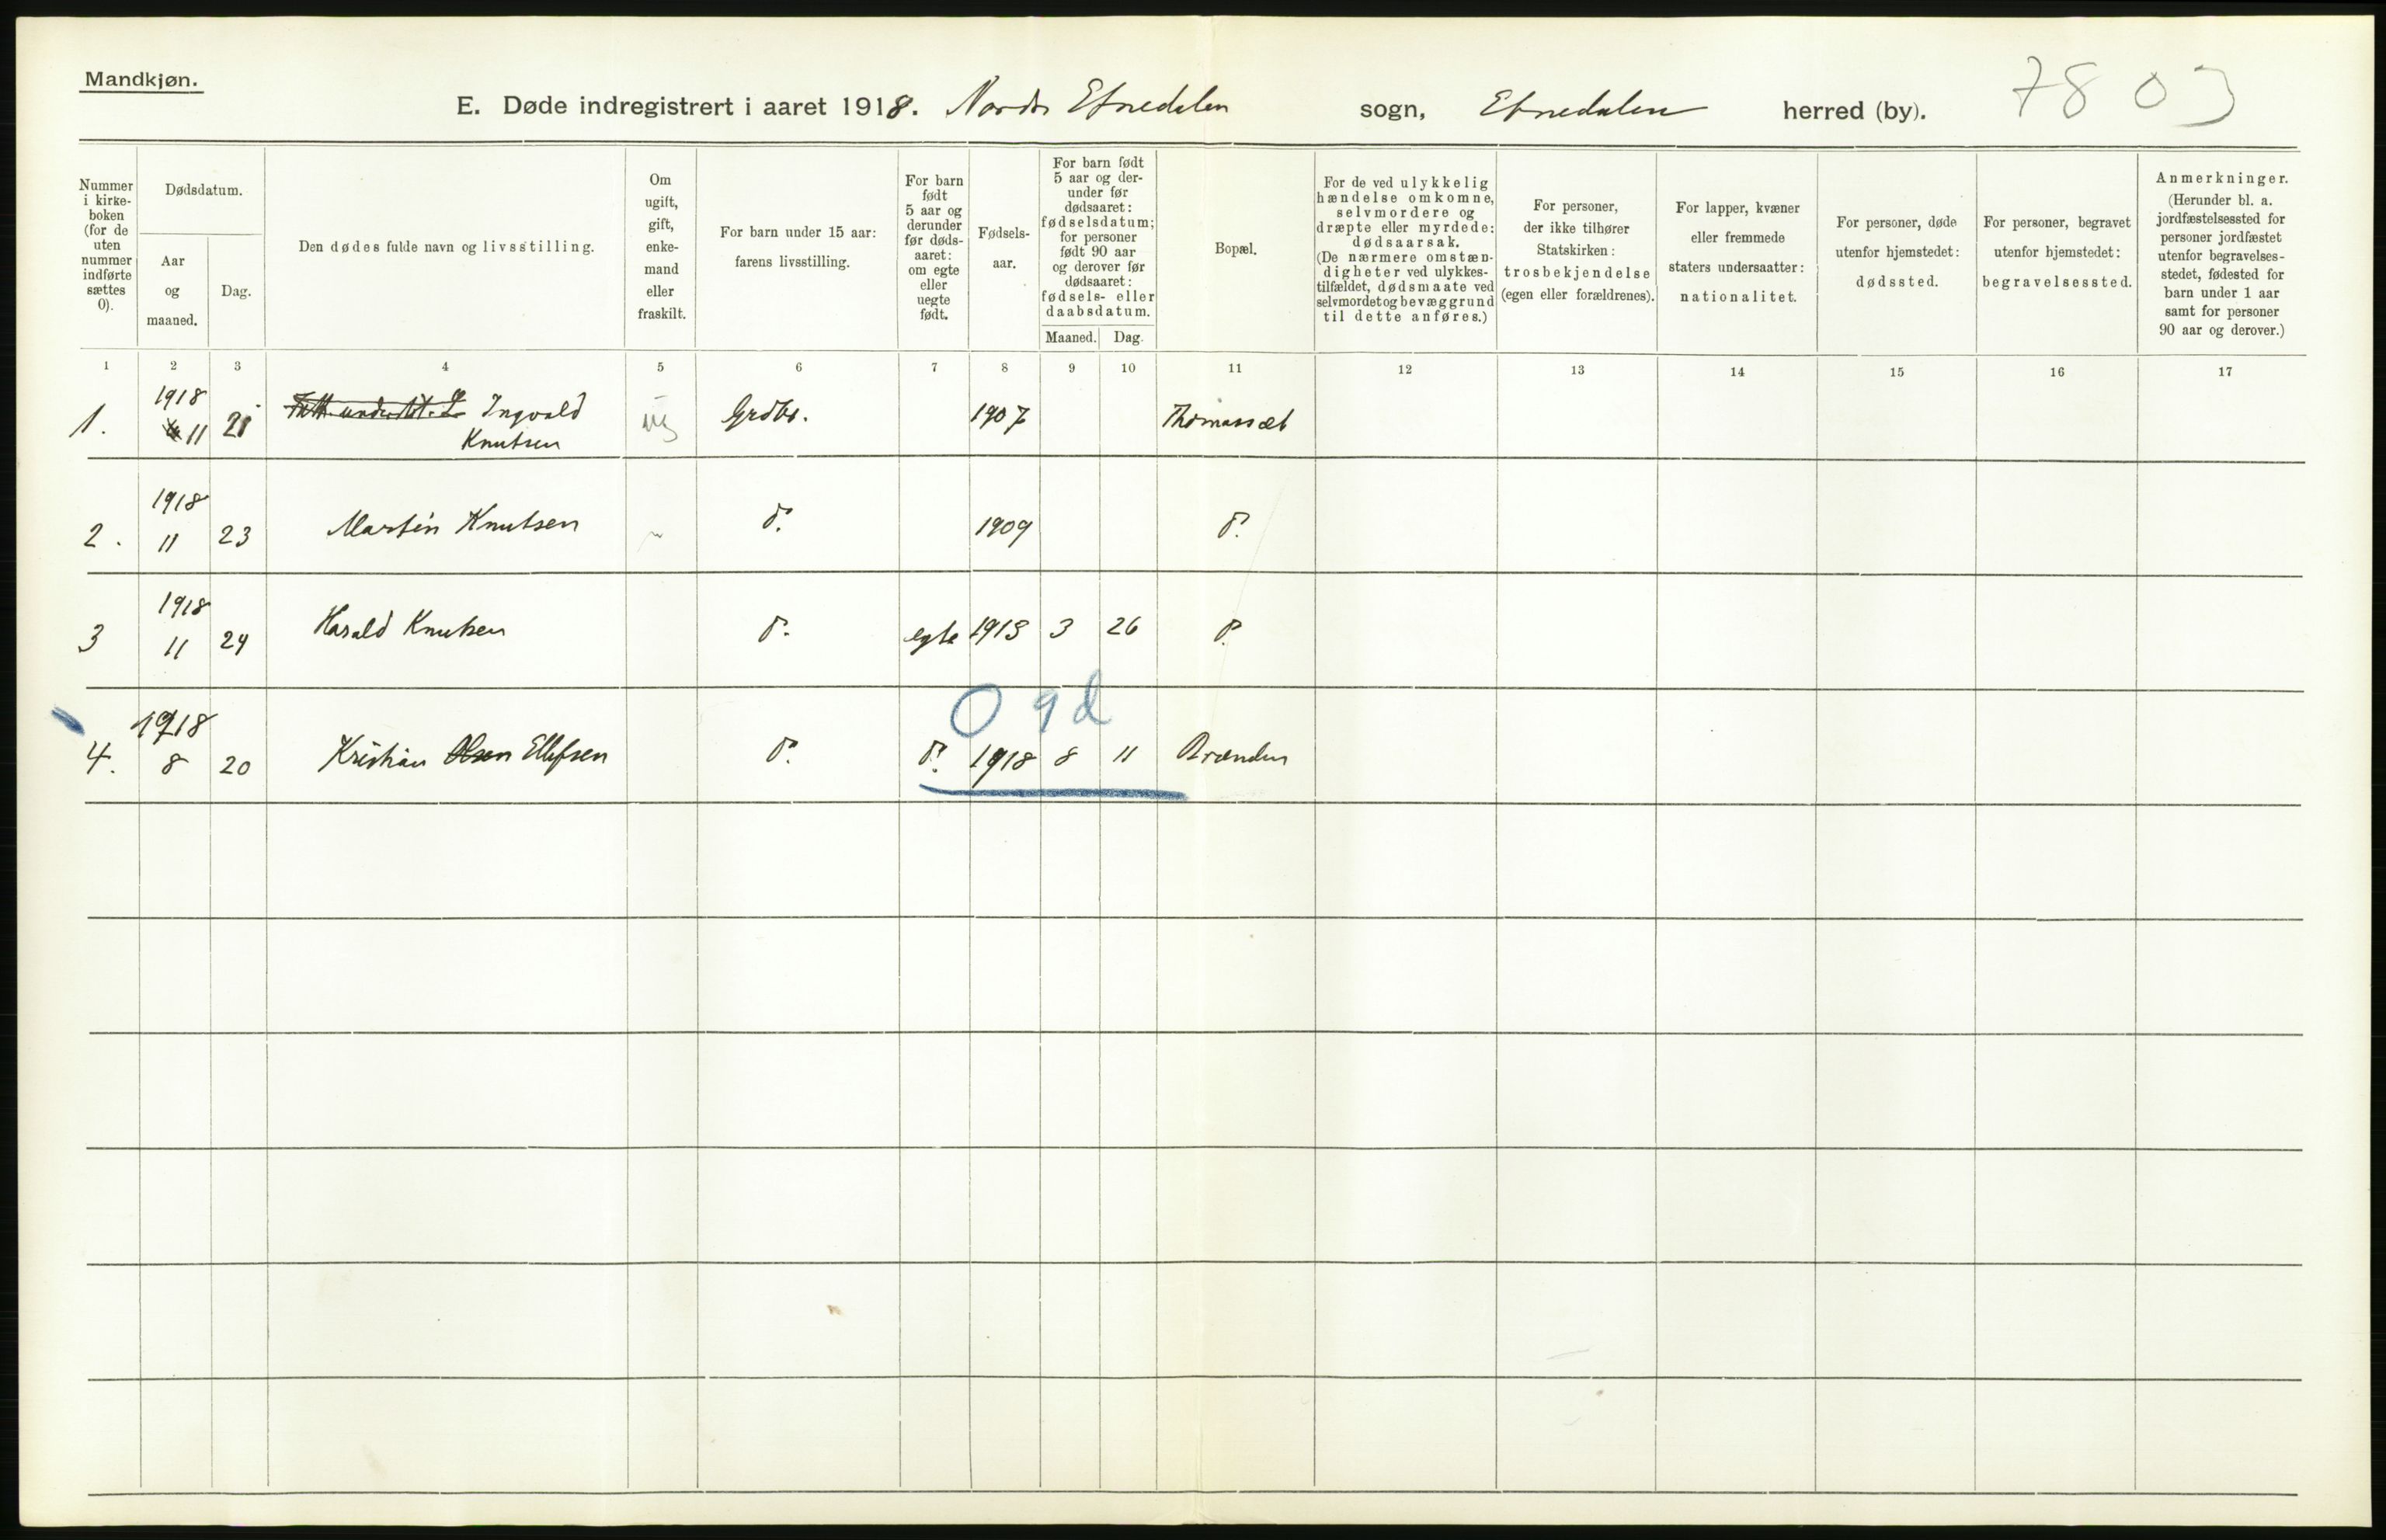 Mandkjøn.
E. Døde indregistrert i aaret 1918. Nordr Etnedalen sogn, Etnedalen herred (by). 7803
Nummer i kirke- boken (for de uten nummer indførte sættes 0).
Dødsdatum.
Aar og maaned.
Dag.
Den dødes fulde navn og livsstilling.
Om ugift, gift, enke- mand eller fraskilt.
For barn under 15 aar: farens livsstilling.
For barn født 5 aar og derunder før døds- aaret: om egte eller uegte født.
Fødsels- aar.
For barn født 5 aar og der- under før dødsaaret: fødselsdatum; for personer født 90 aar og derover før dødsaaret: fødsels- eller daabsdatum.
Maaned. Dag.
Bopæl.
For de ved ulykkelig hændelse omkomne, selvmordere og dræpte eller myrdede: dødsaarsak. (De nærmere omstæn- digheter ved ulykkes- tilfældet, dødsmaate ved selvmordet og bevæggrund til dette anføres.)
For personer, der ikke tilhører Statskirken: trosbekjendelse (egen eller forældrenes).
For lapper, kvæner eller fremmede staters undersaatter: nationalitet.
For personer, døde utenfor hjemstedet: dødssted.
For personer, begravet utenfor hjemstedet: begravelsessted.
Anmerkninger. (Herunder bl. a. jordfæstelsessted for personer jordfæstet utenfor begravelses- stedet, fødested for barn under 1 aar samt for personer 90 aar og derover.)
1 2 3 4 5 6 7 8 9 10 11 12 13 14 15 16 17
1. 1918 11 21 Ingvald Knutsen ug Grdbr. 1907 Thomasset
2. 1918 11 23 Martin Knutsen d. 1909 d.
3 1918 11 24 Harald Knutsen d. egte 1918 3 26 d.
0 9 d
4. 1918 8 20 Kristian Olsen Ellefsen d. d. 1918 8 11 Brænden